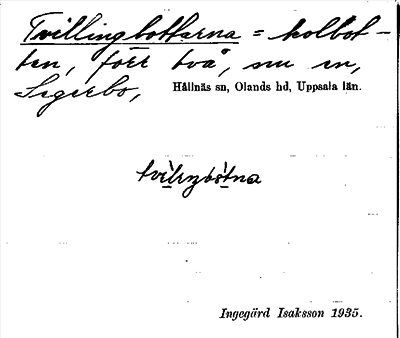 Tvillingbottarna = kolbot-
ten, förr två, nu en,
Sigerbo, Hållnäs sn, Olands hd, Uppsala län.
Ingegärd Isaksson 1935.